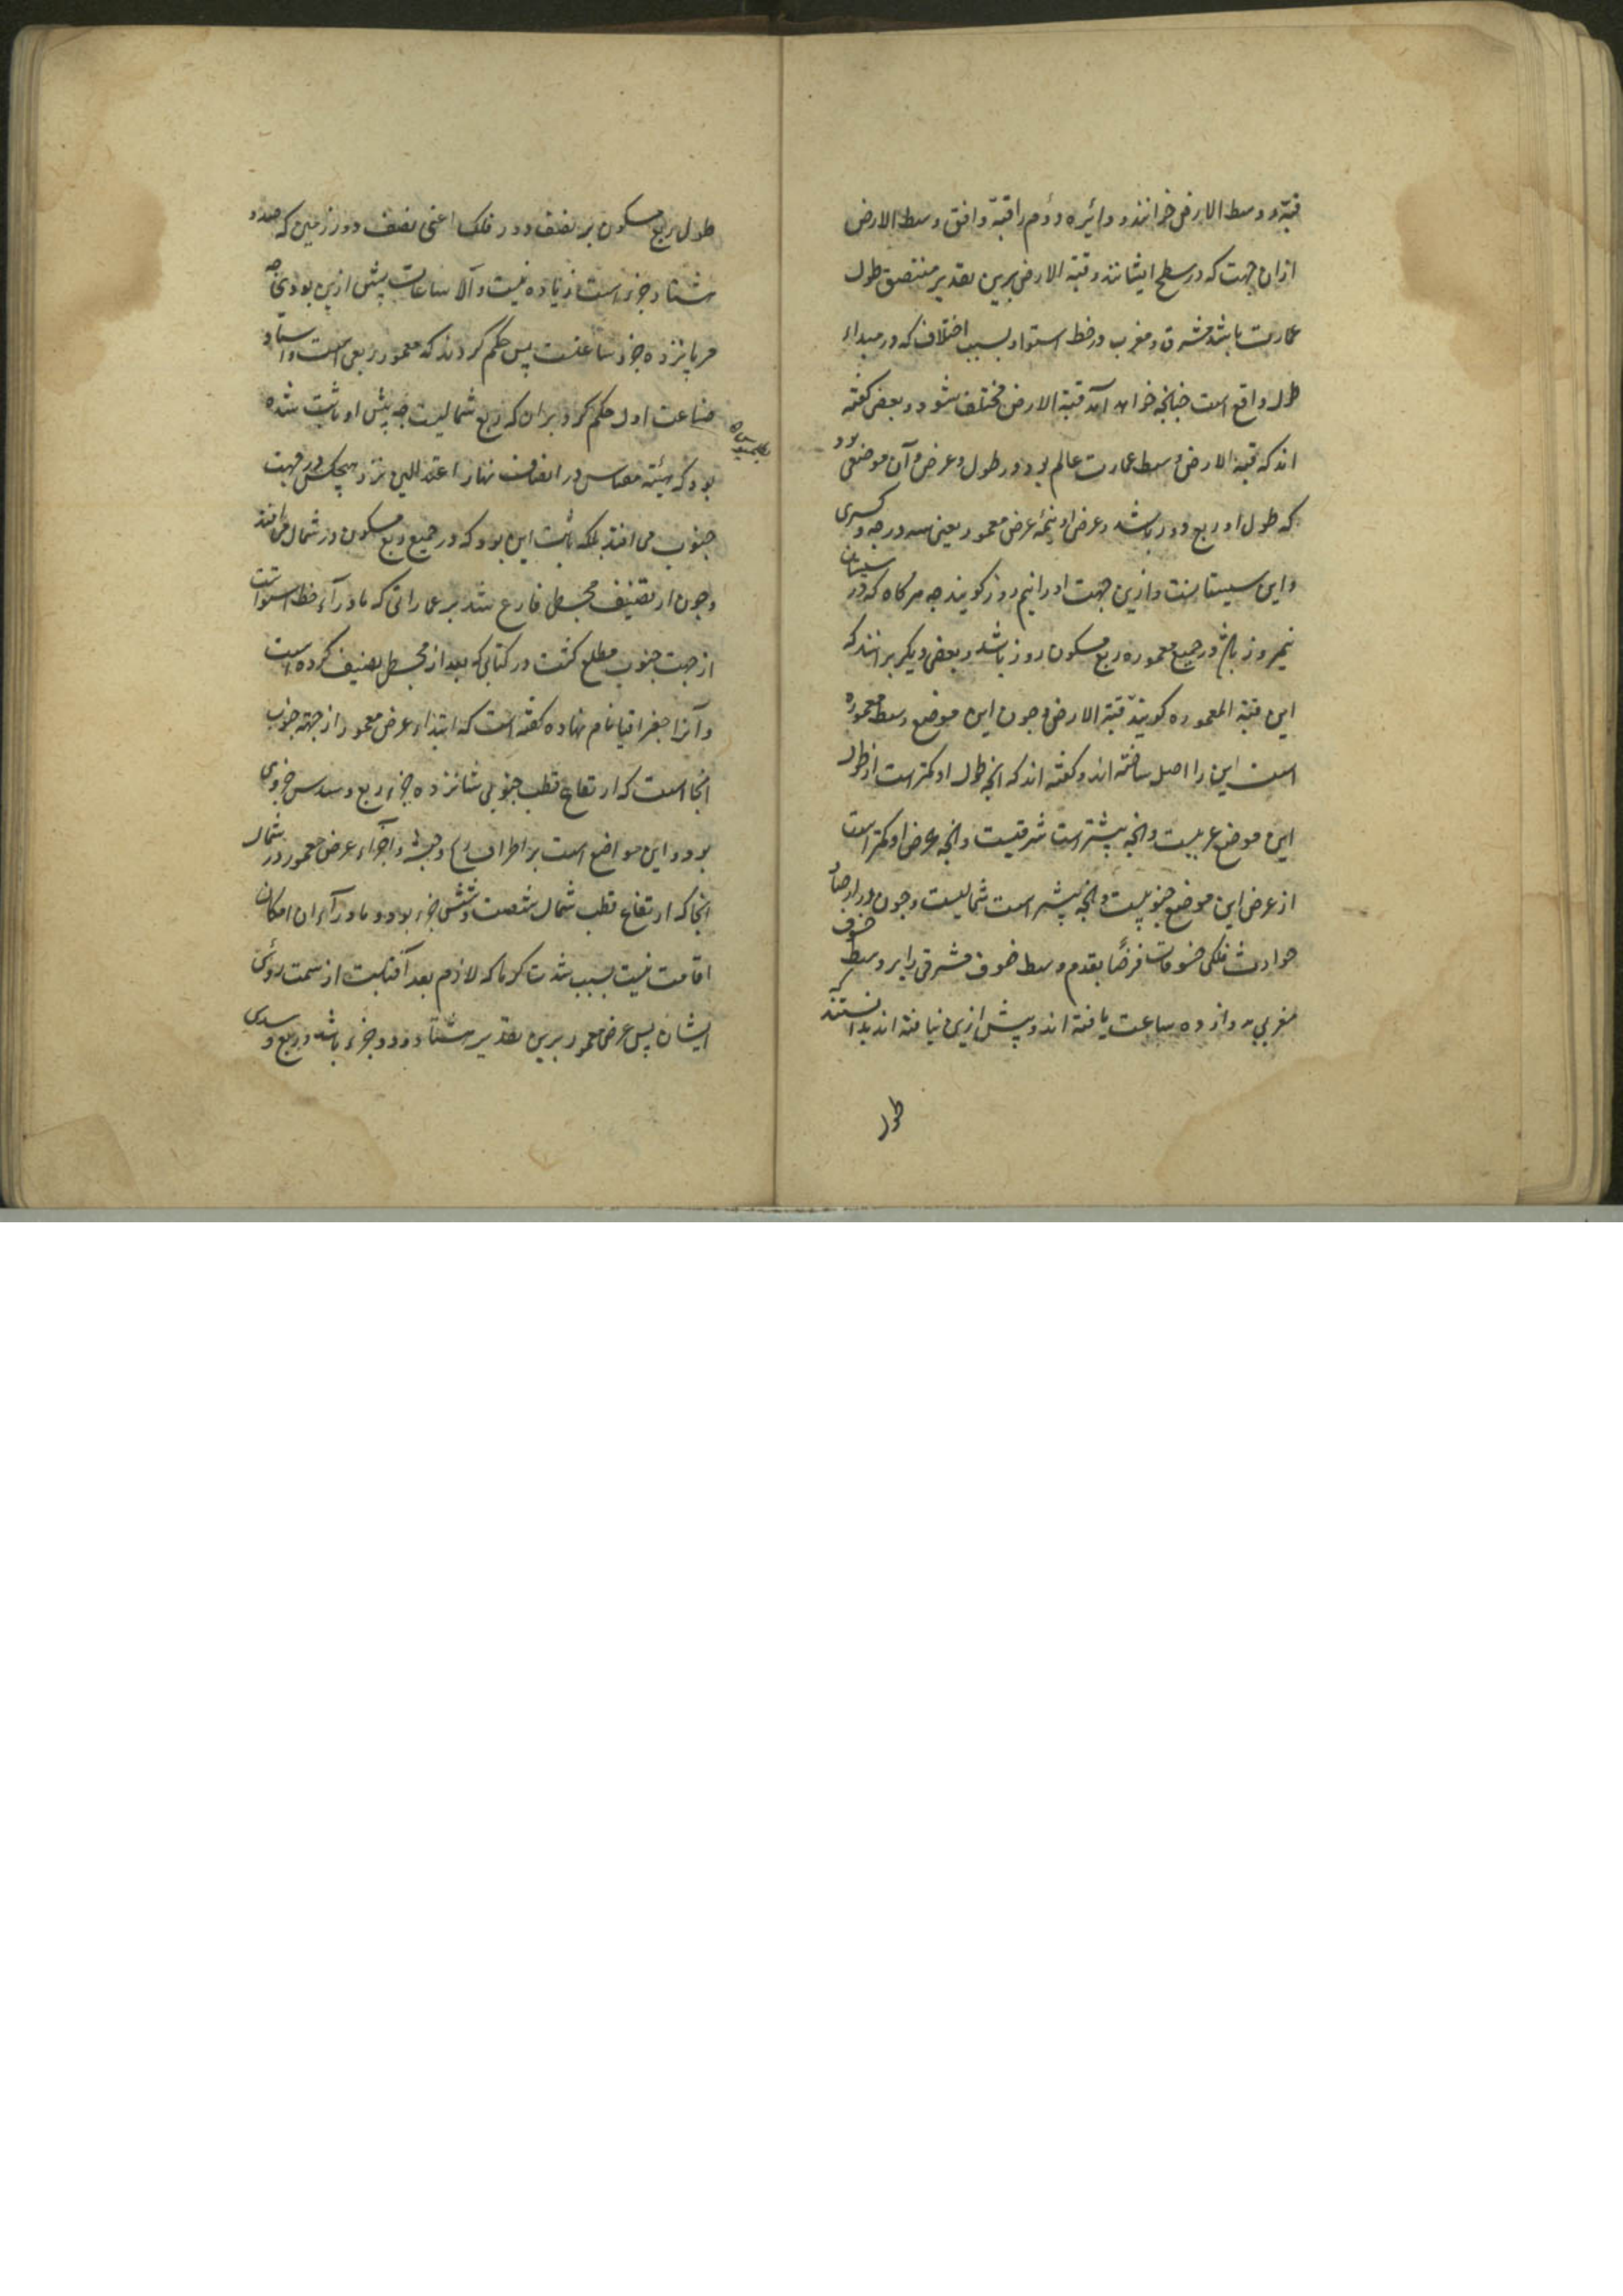 قبّه و وسط الارض خوانند و دائیره دوم را قبّه و افق وسط الارض
ازان جهت که در سطح ایشانند و قبّة الارض برین تقدیر منتصف طول
عمارت باشد مشرق و مغرب در خط استوا و بسبب اختلاف که در مبداء
طول واقع است چنانچه خواهد آمد قبّة الارض مختلف شود و بعضی گفته
اند که قبّة الارض وسط عمارت عالم بود در طول و عرض و آن موضعی بود
که طول او ربع دور باشد و عرض او نیمهٔ عرض معمور یعنی سه درجه و کسری
و این سیستانست و ازین جهت او را نیم روز کویند چه هرکاه که در سیستان
نیمروز باشد در جمیع معموره ربع مسکون روز باشد و بعضی دیکر برانند که
این قبّة المعموره کویند قبّة الارض و چون این موضع وسط معموره
است این را اصل ساخته اند و کفته اند که انچه طول او کمتر است از طول
این موضع غربیست و انچه بیشتر است شرقیست و انچه عرض او کمتر است
از عرض این موضع جنوبیست و انچه بیشتر است شمالیست و چون در ارصاد
حوادث فلکی خسوفات فرضًا تقدم وسط خسوف مشرقی را بر وسط خسوف
مغربی بدوازده ساعت یافته اند و بیش ازین نیافته اند بدانستند که
طول
طول ربع مسکون بر نصف دور فلک اعنی نصف دور زمین که صد و
هشتاد جزء است زیاده نیست و الّا ساعات بیش ازین بودی چه
هر پانزده جزو ساعتست پس حکم کردند که معمور ربعی است و استاد
صناعت اول حکم کرد بران که ربع شمالیست چه پیش او ثابت نشده
بطلمیوس
بود که سایه مقیاس در انصاف نهار اعتدالین نزد هیچکس در جهت
جنوب می افتد بلکه ثابت این بود که در جمیع ربع مسکون در شمال می افتد
و چون از تصنیف مجسطی فارغ شد بر عماراتی که ماورآء خط استواست
از جهت جنوب مطلع کشت در کتابی که بعد از مجسطی تصنیف کرده است
و آنرا جغرافیا نام نهاده کفته است که ابتداء عرض معمور از جهة جنوب
انجا است که ارتفاع قطب جنوبی شانزده جزء و ربع و سدس جزوی
بود و این مواضع است بر اطراف زنج و حبشه و اجزاء عرض معمور در شمال
انجا که ارتفاع قطب شمال شصت و شش جزء بود و ماورآء ان امکان
اقامت نیست بسبب شدت سرما که لازم بعد آفتابست از سمت رؤس
ایشان پس عرض معمور برین تقدیر هشتاد و دو جزء باشد و ربع و سدسی